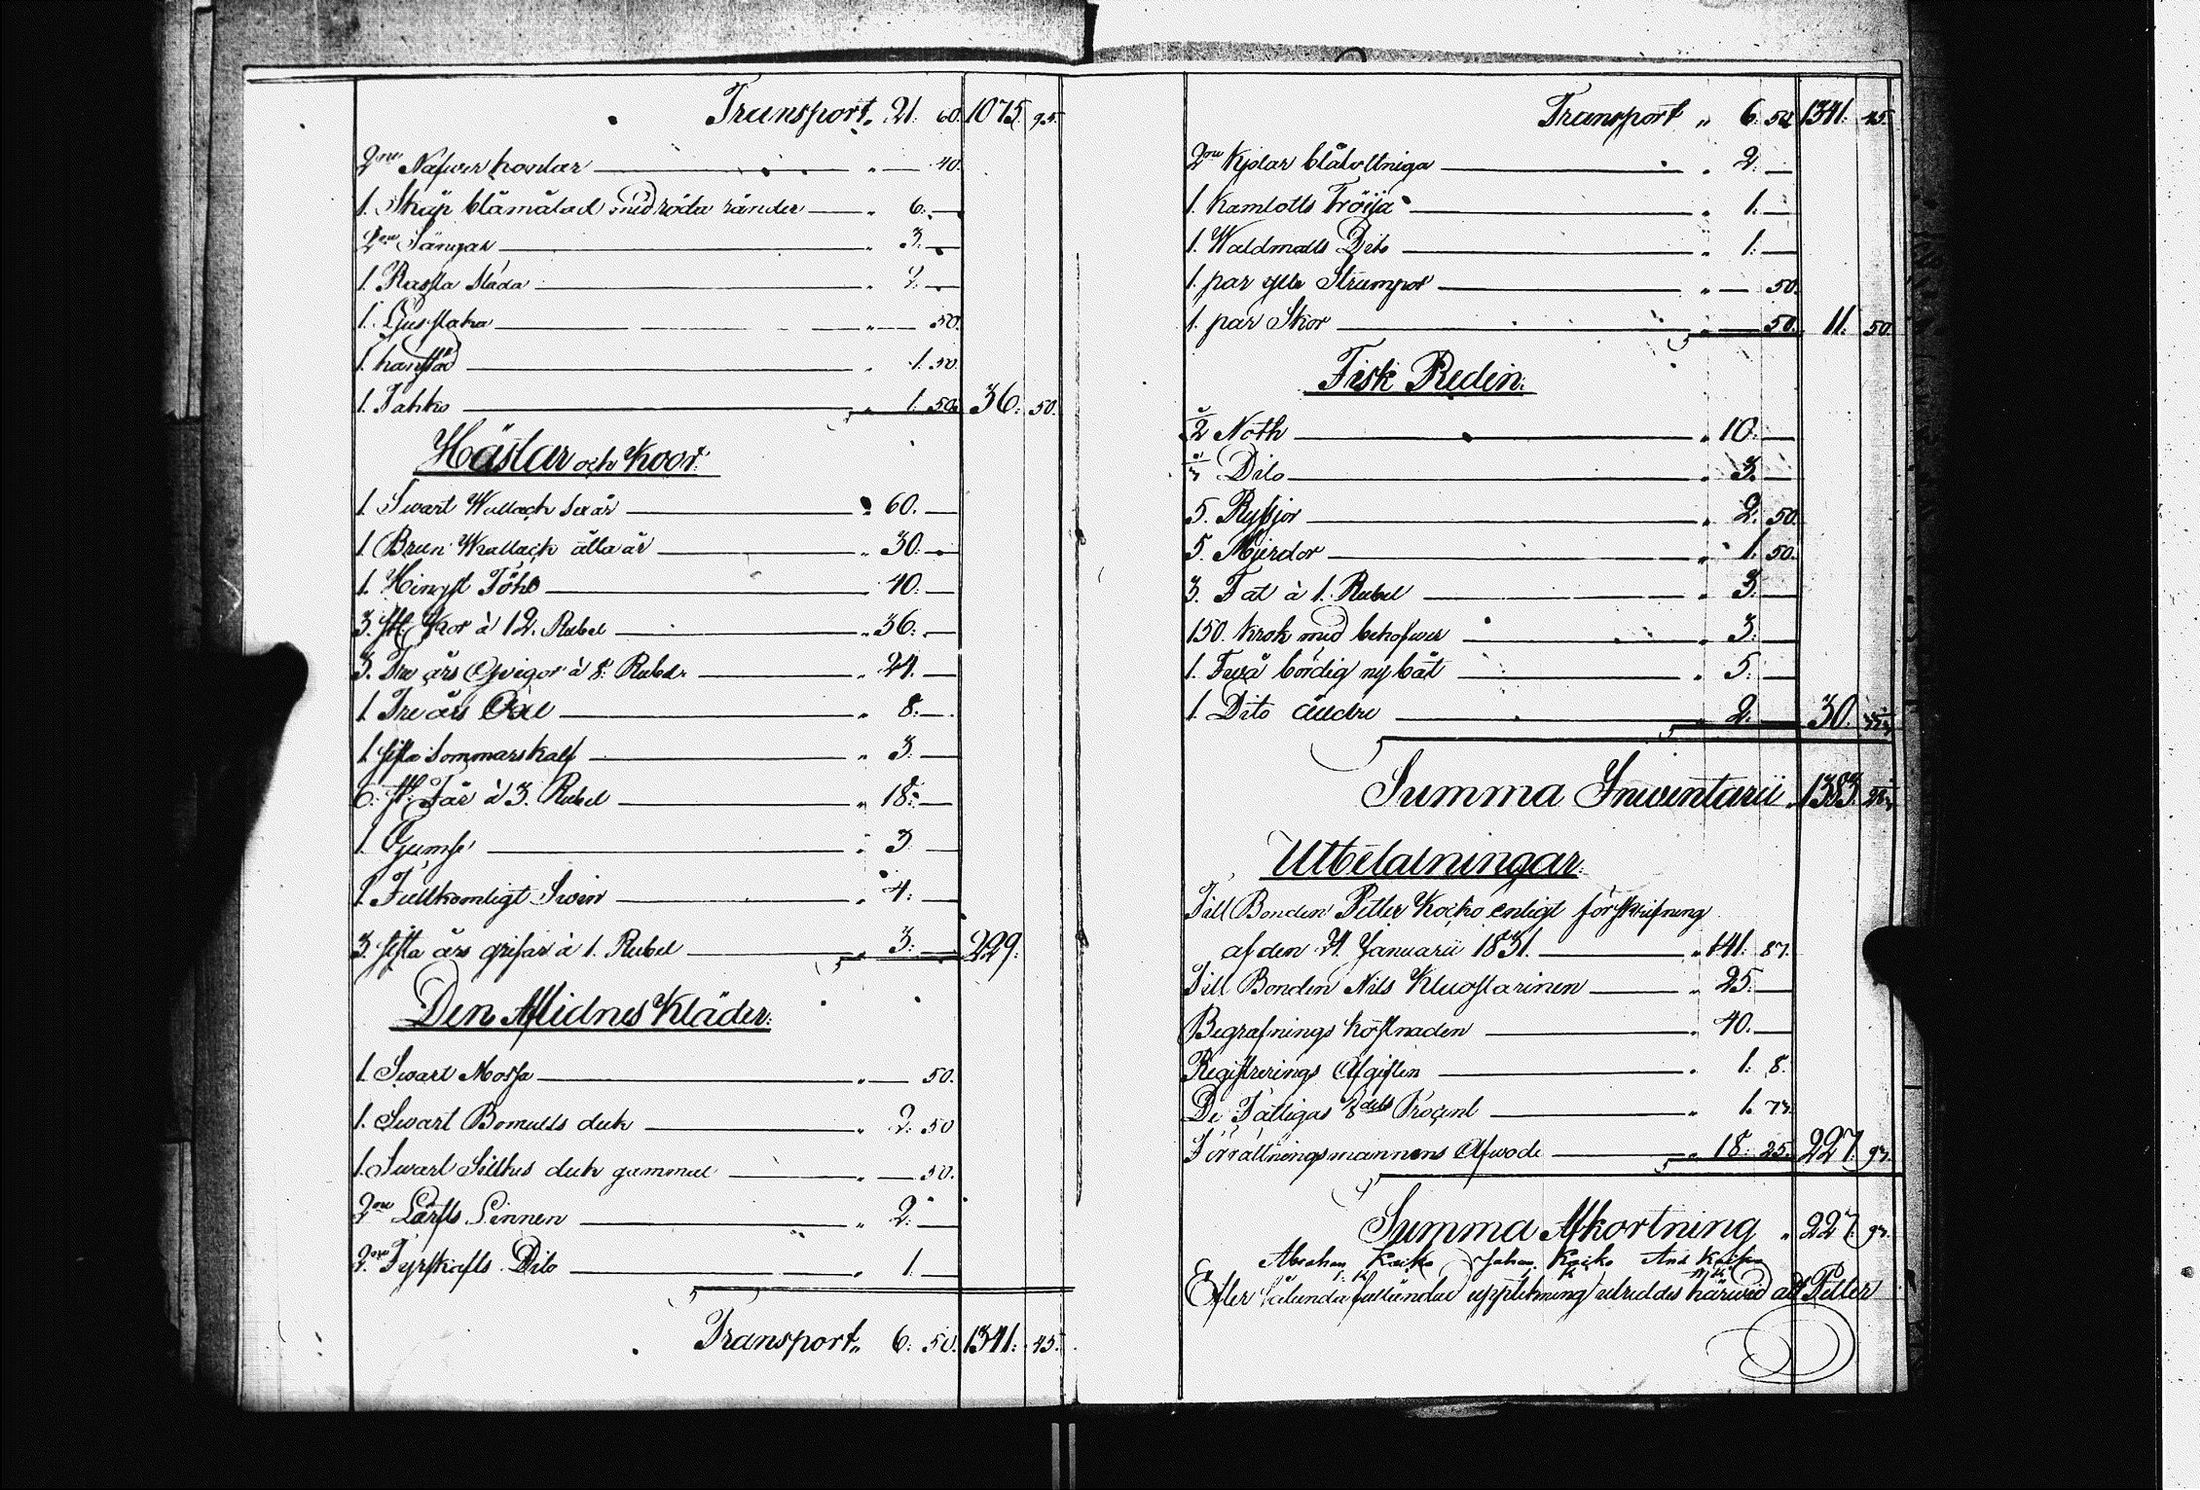 Transport „ 21. 60. 1075. 95.
2ne Näfver kontar „ — 40.
1. Skåp blåmålad med röda ränder „ 6. —
2ne Sängar „ 3. —
1. Släda „ 2. —
1. Ljusstaka „ — 50.
1. „ 1. 50.
1. Tahko „ 1. 50. 36. 50.
Hästar och Koor.
1. Swart Wallack sex år „ 60. —
1. Brun Wallack åtta år „ 30. —
1. Hingst Föhl „ 40. —
3. st. Kor à 12. Rubel „ 36. —
3. Tre års Qvigor à 8. Rubel „ 24. —
1. Tre års Oxe „ 8. —
1. sista Sommars kalf „ 3. —
6. st. Får à 3. Rubel „ 18. —
1. Gumse „ 3. —
1. Fullkomligt Swin „ 4. —
3. sista års grisar à 1. Rubel „ 3. — 229.
Den Aflidnes Kläder.
1. Swart Mössa „ — 50.
1. Swart Bomulls duk „ 2. 50
1. Swart Silkes duk gammal „ — 50.
2ne Lärfts Linnen „ 2. —
2ne Fyrskafts Dito „ 1. —
Transport „ 6. 50. 1341. 45.
Transport „ 6. 50. 1341. 45.
2ne Kjolar blårandiga „ 2. —
1. Kamlotts Tröija „ 1. —
1. Waldmals Dito „ 1. —
1. par ylle Strumpor „ — 50.
1. par Skor „ — 50. 11. 50.
Fisk Reden.
1/2 Noth „ 10. —
Dito „ 3. —
5. Ryssjor „ 2. 50.
5. Mjerdor „ 1. 50.
3. Fat à 1. Rubel „ 3. —
150. Krok med behofwer „ 3. —
1. Twå bördig ny båt „ 5. —
1. Dito äldre „ 2. — 30.
Summa Inventarii 1383.
Utbetalningar.
Till Bonden Petter Koiko enligt förskrifning
af den 21. Januarii 1831. „ 141. 87.
Till Bonden Nils Kluostarinen „ 25. —
Begrafnings kostnaden „ 40. —
Registrerings Afgiften „ 1. 8.
De Fattigas 8dels Procent „ 1. 73.
Förrättningsmannens Arfwode „ 18. 25. 227. 93.
Summa Afkortning „ 227. 93.
Abraham Koiko Johan Koiko And Koiko
Efter sålunda uppteckning utreddes härwid att Petter